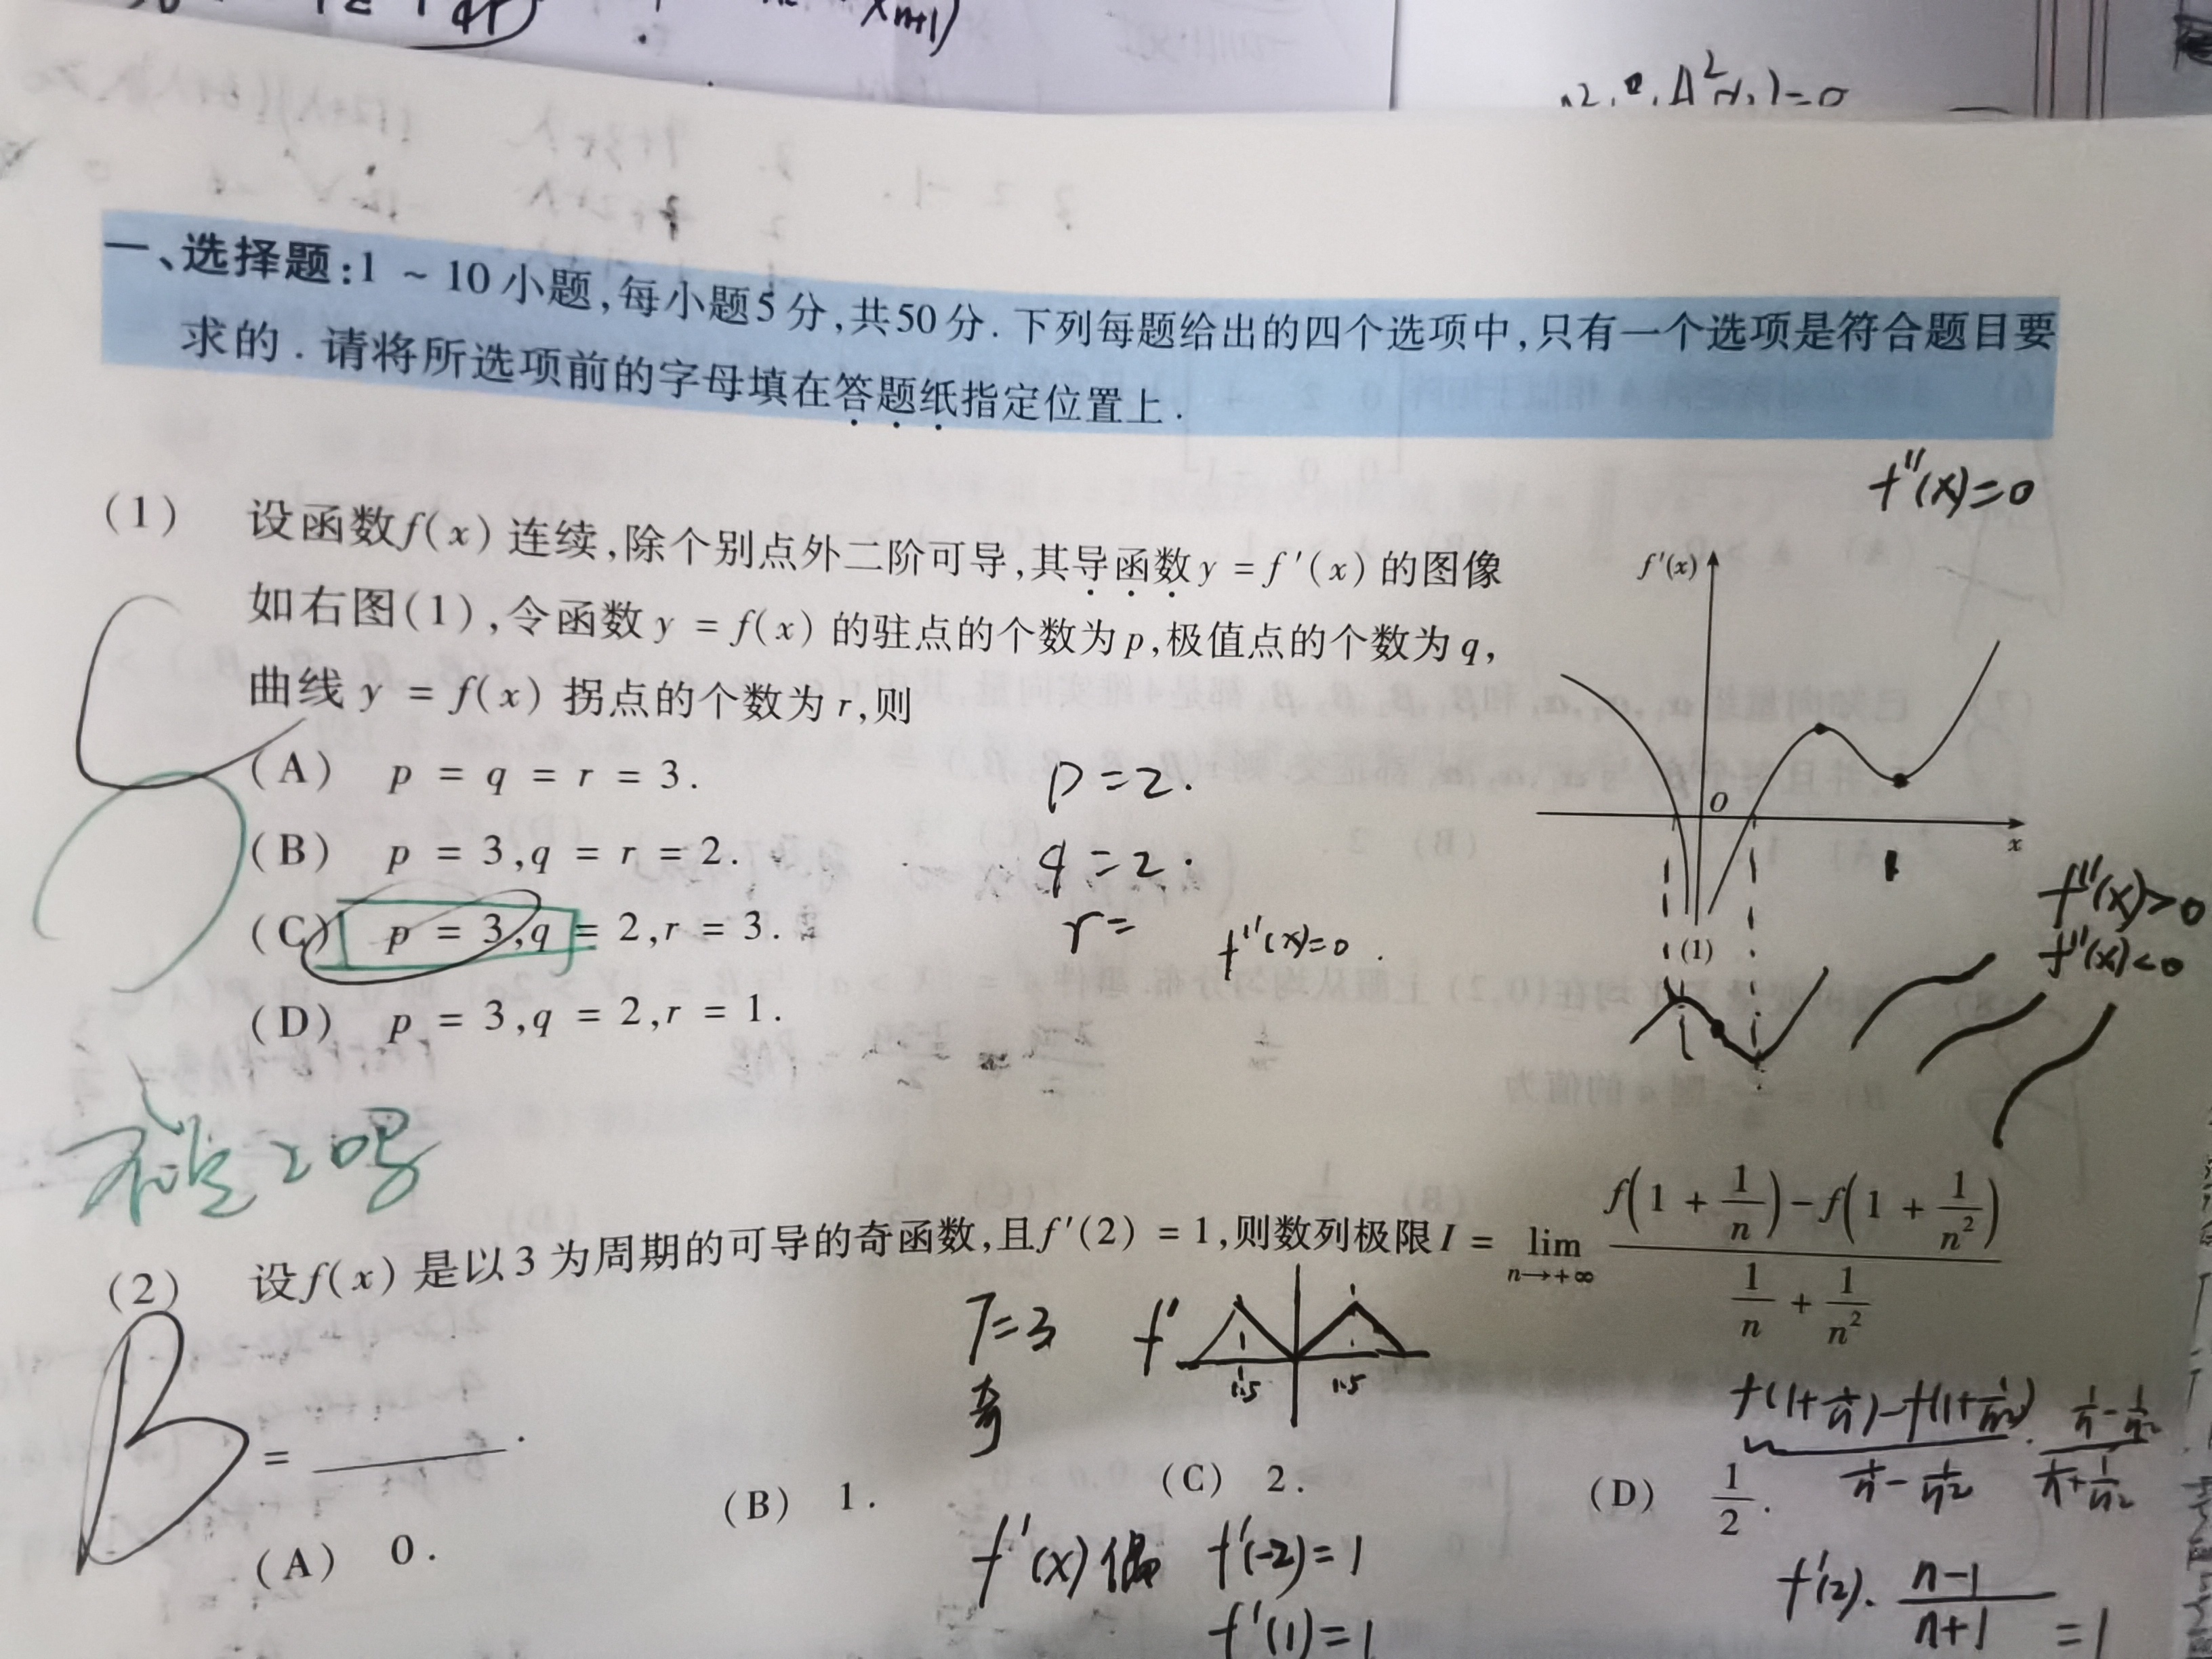 xₙ₊₁)
一、选择题:1 ~ 10 小题,每小题5分,共50分. 下列每题给出的四个选项中,只有一个选项是符合题目要
求的. 请将所选项前的字母填在答题纸指定位置上.
f''(x)=0
(1) 设函数f(x) 连续,除个别点外二阶可导,其导函数y = f'(x) 的图像
如右图(1),令函数 y = f(x) 的驻点的个数为p,极值点的个数为q,
曲线 y = f(x) 拐点的个数为 r,则
(A) p = q = r = 3.
(B) p = 3,q = r = 2.
(C) p = 3,q = 2,r = 3.
(D) p = 3,q = 2,r = 1.
p=2.
q=2.
r=
f''(x)=0.
f'(x)
O
x
(1)
f''(x)>0
f''(x)<0
C
不是2吗
(2) 设f(x) 是以3为周期的可导的奇函数,且f'(2) = 1,则数列极限I = lim_{n→+∞} [f(1 + 1/n) - f(1 + 1/n²)] / [1/n + 1/n²]
= ____.
B
T=3
奇
f'
1.5 1.5
(A) 0.
(B) 1.
(C) 2.
(D) 1/2.
[f(1+1/n)-f(1+1/n²)] / [1/n-1/n²] · [1/n-1/n²] / [1/n+1/n²]
f'(x)偶 f'(-2)=1
f'(1)=1
f'(2). (n-1)/(n+1) =1